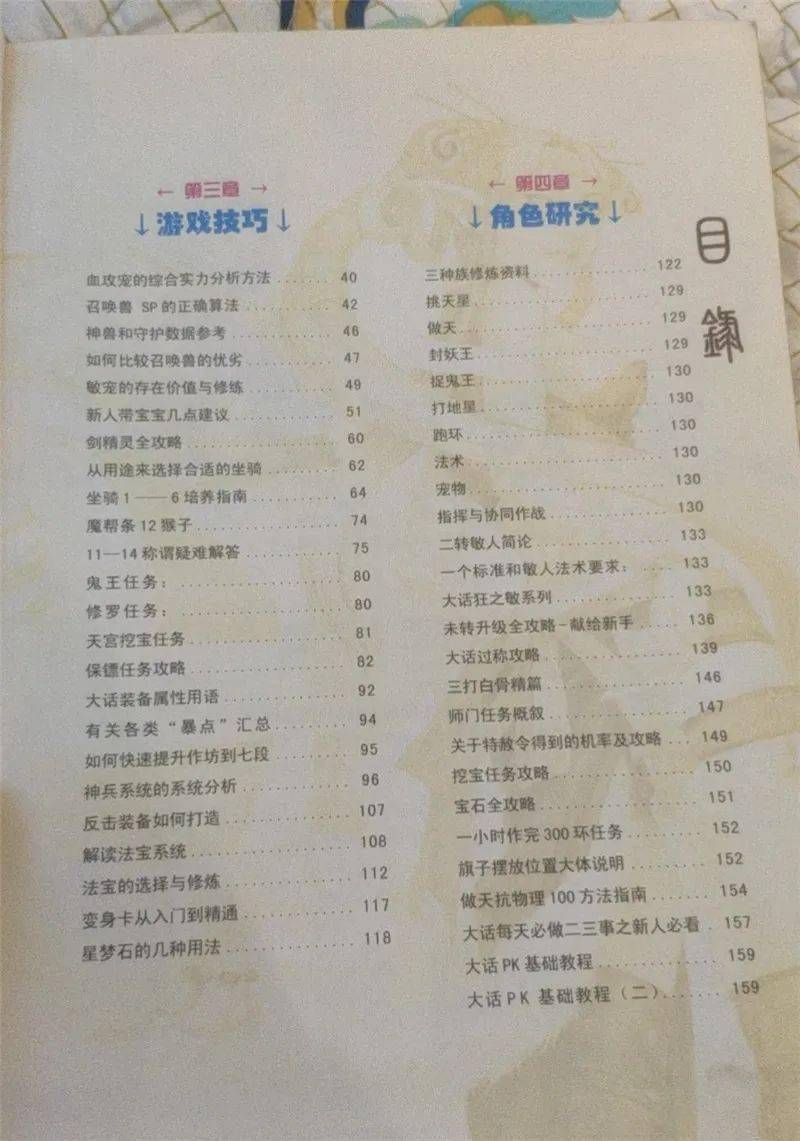 目录
← 第三章 →
↓游戏技巧↓
血攻宠的综合实力分析方法........40
召唤兽 SP的正确算法............42
神兽和守护数据参考............46
如何比较召唤兽的优劣............47
敏宠的存在价值与修练............49
新人带宝宝几点建议............51
剑精灵全攻略............60
从用途来选择合适的坐骑............62
坐骑1——6培养指南............64
魔帮条12猴子............74
11—14称谓疑难解答............75
鬼王任务：............80
修罗任务：............80
天宫挖宝任务............81
保镖任务攻略............82
大话装备属性用语............92
有关各类“暴点”汇总............94
如何快速提升作坊到七段............95
神兵系统的系统分析............96
反击装备如何打造............107
解读法宝系统............108
法宝的选择与修炼............112
变身卡从入门到精通............117
星梦石的几种用法............118
← 第四章 →
↓角色研究↓
三种族修炼资料............122
挑天星............129
做天............129
封妖王............129
捉鬼王............130
打地星............130
跑环............130
法术............130
宠物............130
指挥与协同作战............130
二转敏人简论............133
一个标准和敏人法术要求：......133
大话狂之敏系列............133
未转升级全攻略-献给新手.....136
大话过称攻略............139
三打白骨精篇............146
师门任务概叙............147
关于特赦令得到的机率及攻略...149
挖宝任务攻略............150
宝石全攻略............151
一小时作完300环任务........152
旗子摆放位置大体说明........152
做天抗物理100方法指南......154
大话每天必做二三事之新人必看.157
大话PK基础教程............159
大话PK 基础教程（二）.......159